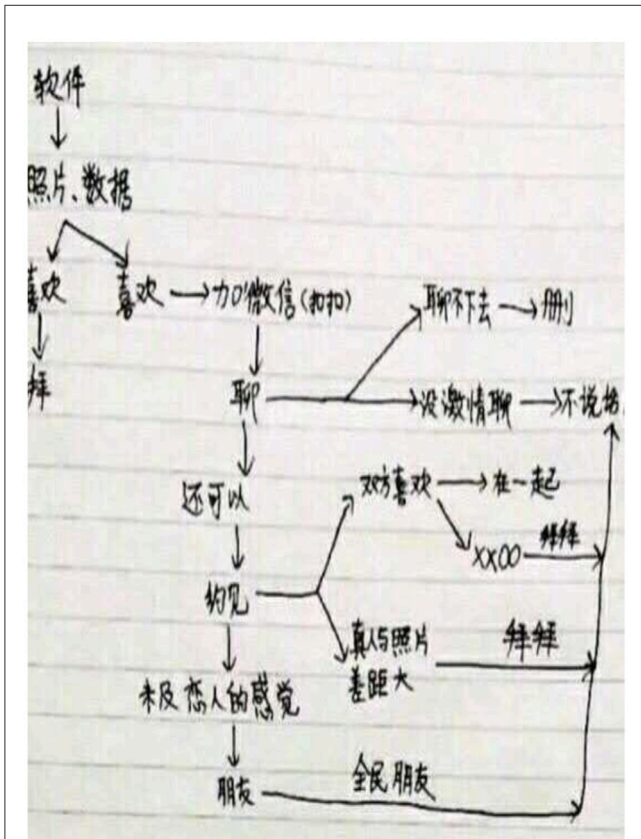 软件
照片、数据
喜欢 喜欢 加微信(扣扣) 聊不下去 删
拜 聊 没激情聊 不说话
还可以 双方喜欢 在一起
XXOO 拜拜
约见 真人与照片 拜拜
差距大
未及恋人的感觉
朋友 全民朋友